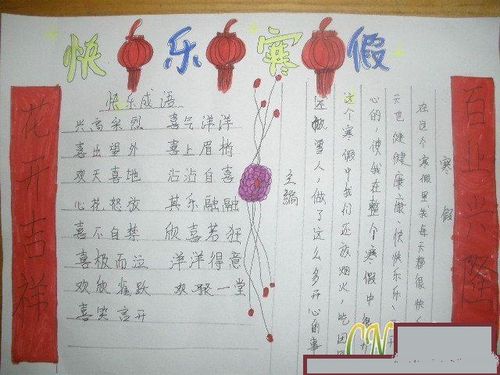 快乐寒假
快乐成语
兴高采烈 喜气洋洋
喜出望外 喜上眉梢
欢天喜地 沾沾自喜
心花怒放 其乐融融
喜不自禁 欣喜若狂
喜极而泣 洋洋得意
欢欣雀跃 欢聚一堂
喜笑言开
主编
寒假
在这个寒假里我每天都很快
天也健健康康、快快乐乐、
心的,使我在整个寒假中
这个寒假中我们还放烟火,吃团
人,做了这么多开心的事
吉祥
兴隆
CN